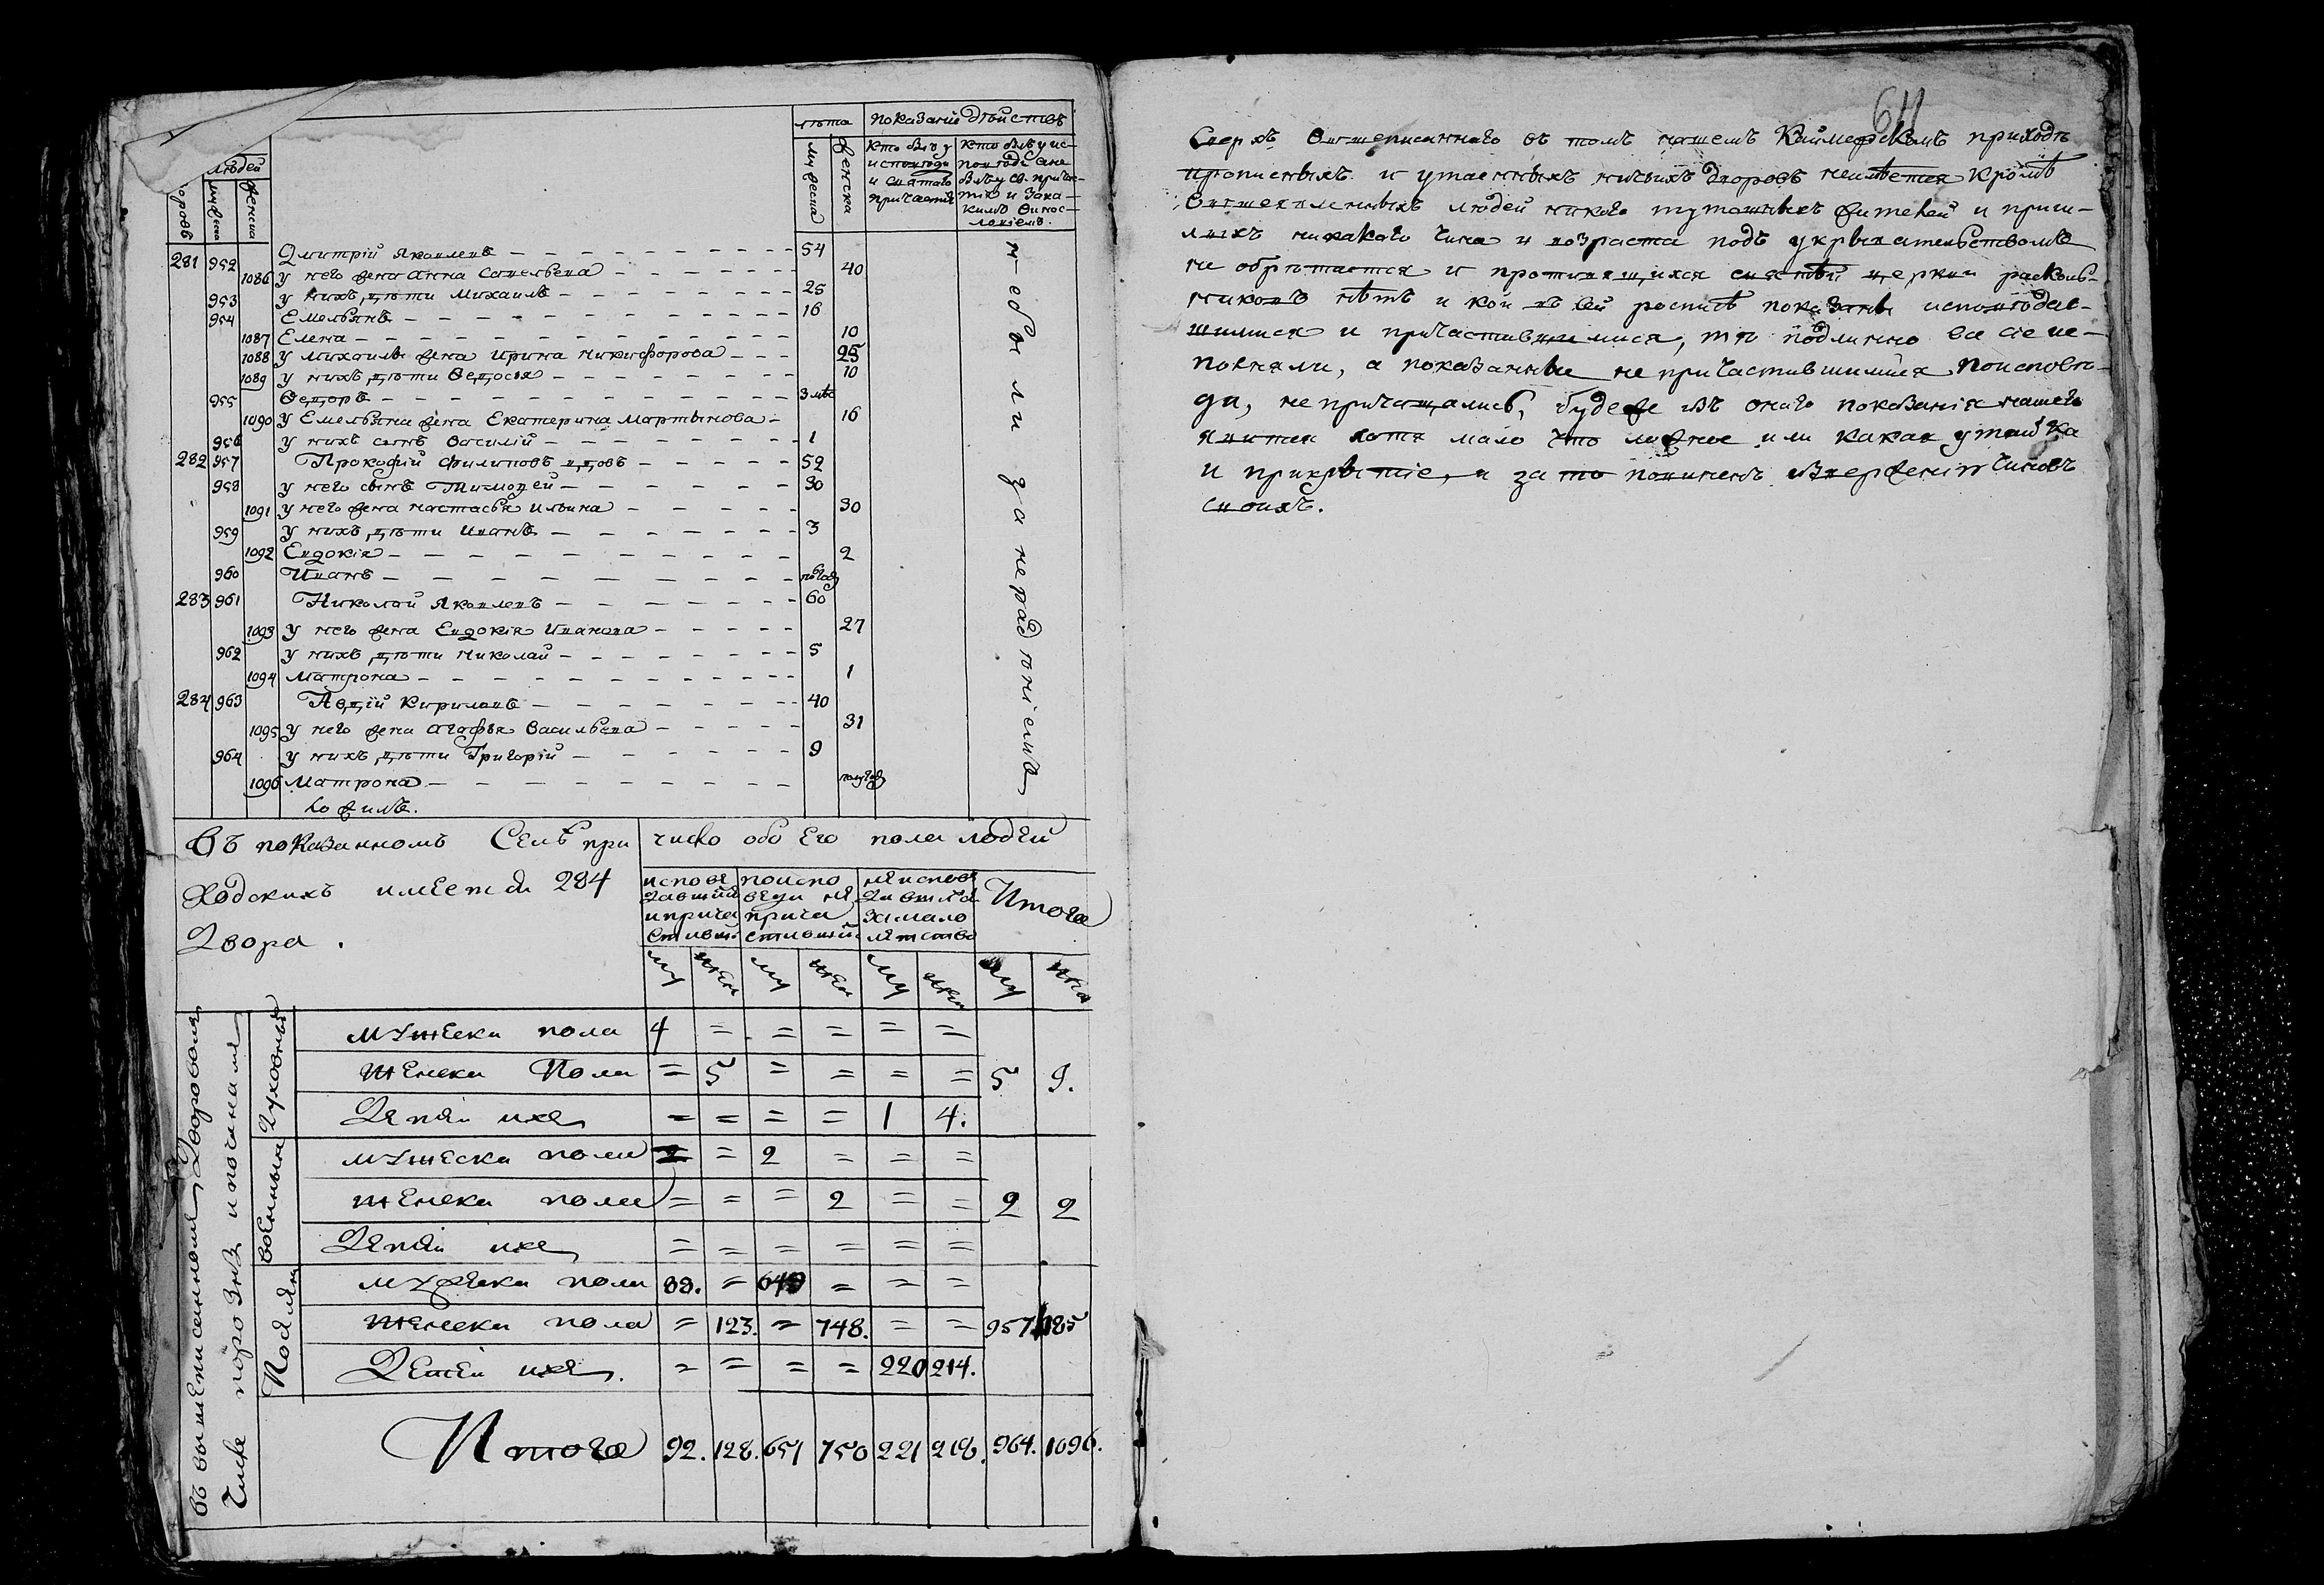 лѣта показаніе дѣйствъ
людей
дворовъ мужеска женска
мужеска женска
кто былъ у исповѣди и святаго причастія
кто былъ у исповѣди а не былъ у св. причастія и за каким винословіемъ
281 952 Дмитрій Яковлевъ 54
1086 у него жена Анна Савельева 40
953 у нихъ дѣти Михаилъ 25
954 Емельянъ 16
1087 Елена 10
1088 у Михаилы жена Ирина Никифорова 25
1089 у нихъ дѣти Ѳедосья 10
955 Ѳедоръ 3 мѣс
1090 У Емельяна жена Екатерина Мартынова 16
956 у нихъ сынъ Василій 1
282 957 Прокофій Филиповъ вдовъ 52
958 у него сынъ Тимофей 30
1091 у него жена Настасья Ильина 30
959 у нихъ дѣти Иванъ 3
1092 Евдокія 2
960 Иванъ полгода
283 961 Николай Яковлевъ 60
1093 у него жена Евдокія Иванова 27
962 у нихъ дѣти Николай 5
1094 Матрона 1
284 963 Авдій Кириловъ 40
1095 у него жена Агафья Васильева 31
964 у нихъ дѣти Григорій 9
1096 Матрона полгода
не были за нерадѣніемъ
Въ показанномъ Селѣ при
ходскихъ имеется 284
Двора.
число обоего пола людей
исповѣдавшихся и причастившихся
по исповеди не причастившихся
не исповедавшихся за малолетством
Итого
му жен му жен му жен му жен
въ вышеписанномъ дворовомъ
числе порознь и по чинамъ
Духовныя
мужеска пола 4 = = = = =
женска пола = 5 = = = = 5. 9.
Детей ихъ = = = = 1 4.
военныя
мужеска пола = = 2 = = =
женска пола = = = 2 = = 2 2
Детей ихъ = = = = = =
Посадския
мужеска пола 88. = 649 = = =
женска пола = 123. = 748. = = 957. 1085
Детей ихъ. = = = = 220 214.
Итого 92. 128. 651 750 221 218. 964. 1096.
Сверхъ вышеписаннаго въ томъ нашемъ Каймарскомъ приходѣ
прописныхъ и утаенныхъ ничьихъ дворовъ неимѣется кромѣ
вышеявленныхъ людей никого тутошныхъ жителей и приш-
лыхъ никакого чина и возраста подъ укрывательствомъ
не обрѣтается и противящихся святѣй церкви расколь-
никовъ нѣтъ и кои въ сей росписѣ показаны исповѣдав-
шимися и причастившимися, тѣ подлинно все сіе ис-
полняли, а показанные не причастившимися по исповѣ-
ди, не причащались, буде же въ онаго показанія нашего
явится хотя мало что ложное или какая утайка
и прикрытіе, и за то повиненъ изверженію чиновъ
своихъ.